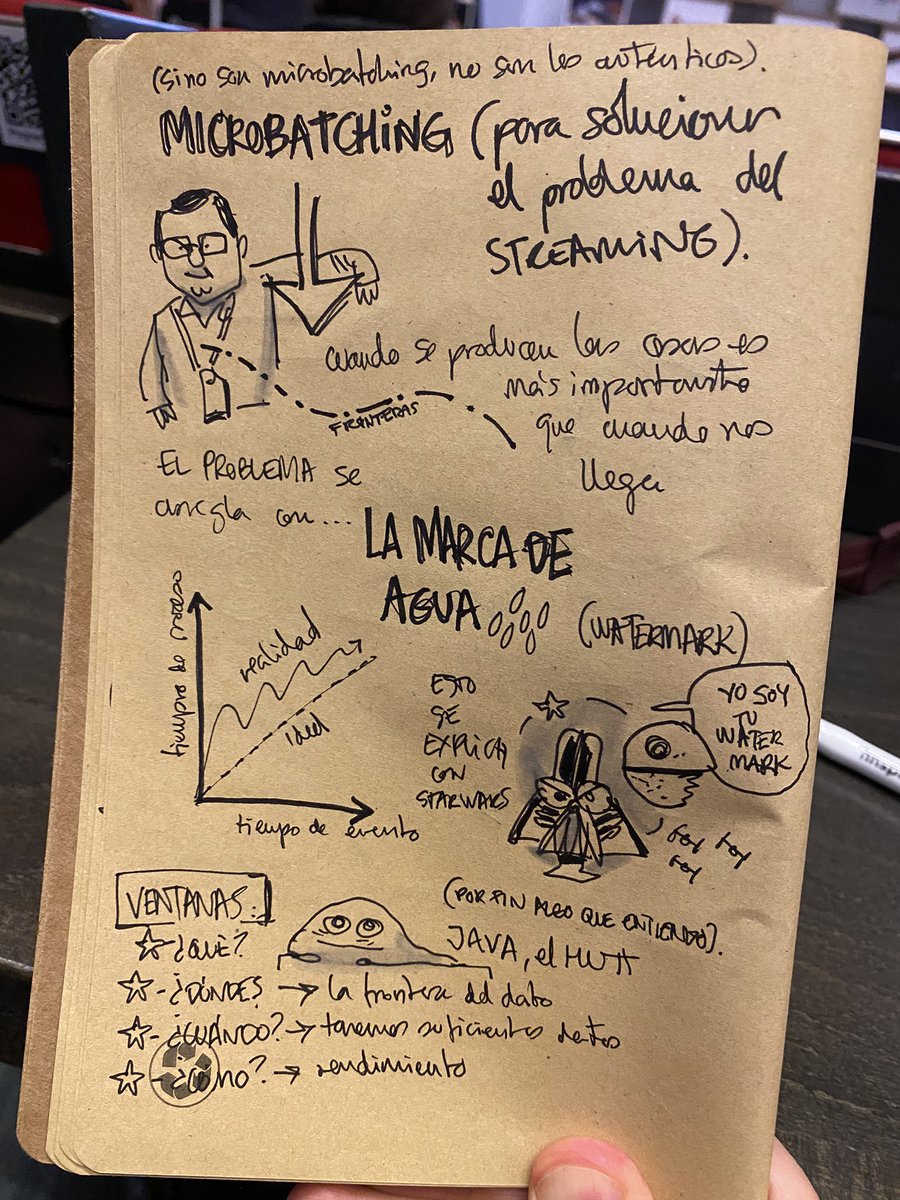 (si no son microbatching, no son los auténticos).
MICROBATCHING (para solucionar
el problema del
STREAMING).
cuando se producen las cosas es
más importante
que cuando nos
llega
FRONTERAS
EL PROBLEMA se
arregla con...
LA MARCA DE
AGUA
(WATERMARK)
tiempo de proceso
realidad
ideal
tiempo de evento
ESTO
SE
EXPLICA
CON
STARWARS
YO SOY
TU
WATER
MARK
(POR FIN ALGO QUE ENTIENDO).
JAVA, el HUTT
VENTANAS:
- ¿QUÉ?
- ¿DÓNDE? → la frontera del dato
- ¿CUÁNDO? → tenemos suficientes datos
- ¿CÓMO? → rendimiento